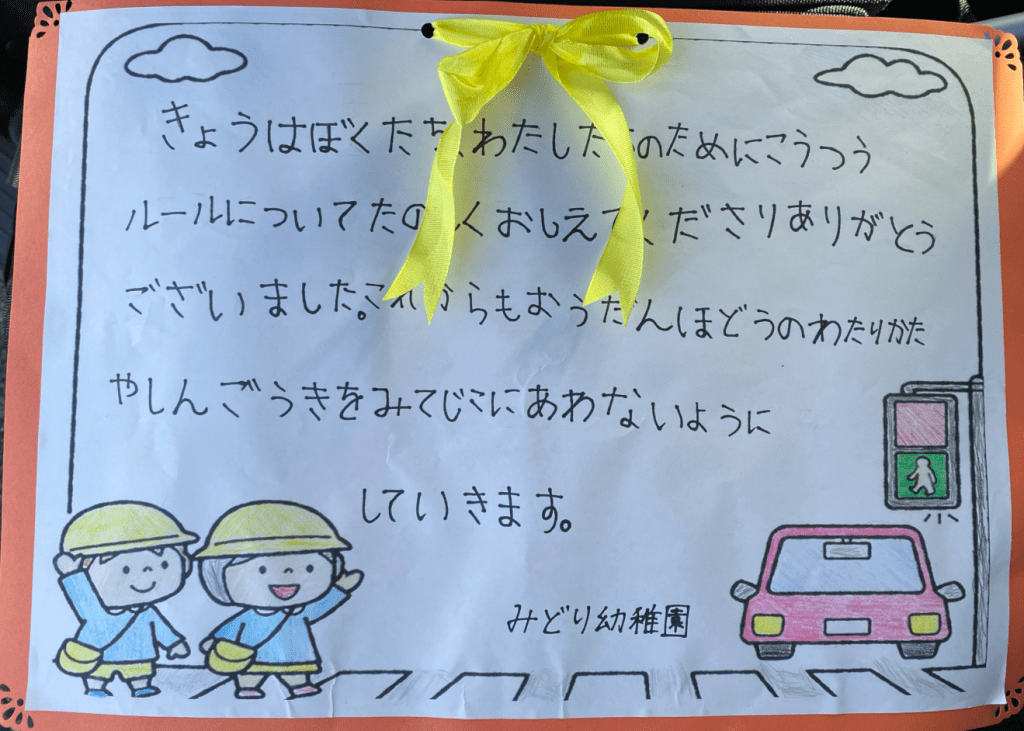 きょうはぼくたち、わたしたちのためにこうつう
ルールについてたのしくおしえてくださりありがとう
ございました。これからもおうだんほどうのわたりかた
やしんごうきをみてじこにあわないように
していきます。
みどり幼稚園